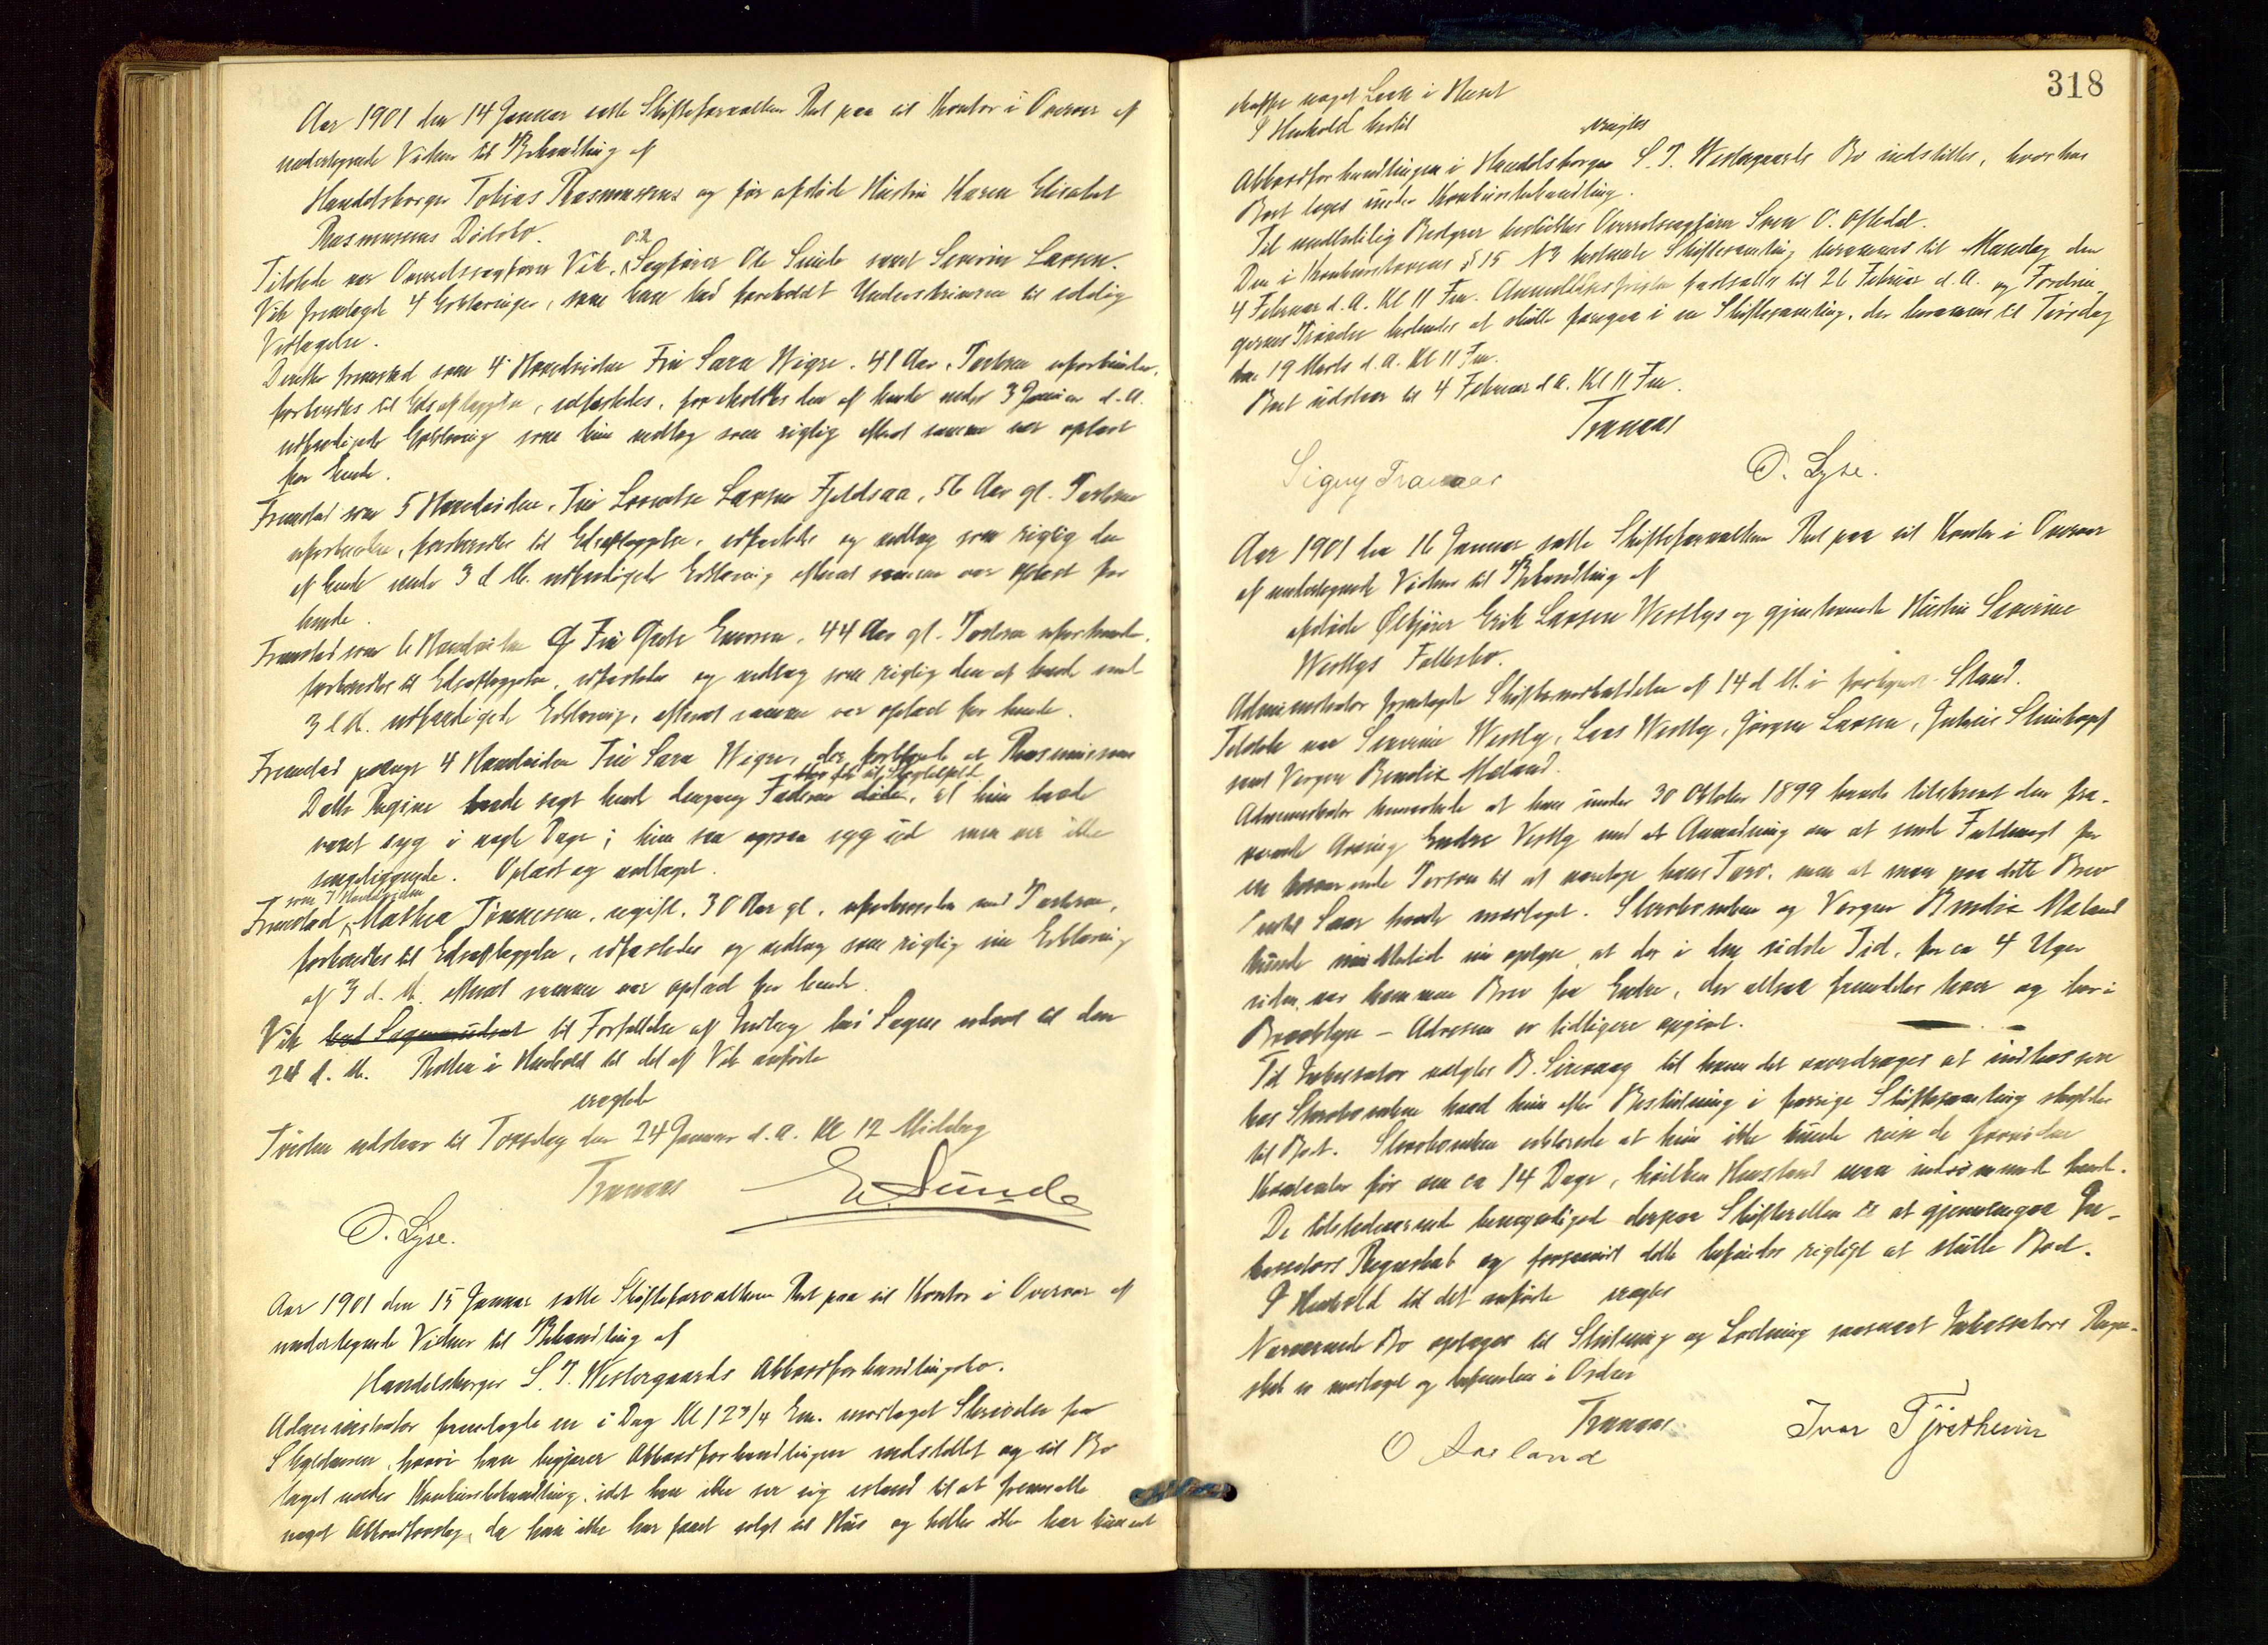 Aar 1901 den 14 Januar satte Skifteforvalteren Ret paa sit Kontor i Overvær af
undertegnede Vidner til Behandling af
Handelsborger Tobias Rasmussens og før afdøde Hustru Karen Elisabet
Rasmussens Dødsbo.
Tilstede var Overretssagfører Vik, O.R. Sagfører Ole Sunde samt Severin Larsen.
Vik fremlagde 4 Erklæringer, som han bad foreholdt Underskriverne til edelig
Vedtagelse.
Derefter fremstod som 4 Hovedvidne Fru Sara Wigre, 41 Aar, Parterne uforbunden,
forberedtes til Edsaflæggelse, edfæstedes, foreholdtes den af hende under 3 Januar d. A.
udfærdigede Erklæring som hun vedtog som rigtig efterat samme var oplæst
for hende.
Fremstod som 5 Hovedvidne, Fru Larsen Fjeldsaa, 56 Aar gl. Parterne
uforbunden, forberedtes til Edsaflæggelse, edfæstedes og vedtog som rigtig den
af hende under 3 d. M. udfærdigede Erklæring efterat samme var oplæst for
hende.
Fremstod som 6 Hovedvidne Fru Enersen, 44 Aar gl. Parterne uforbunden,
forberedtes til Edsaflæggelse, edfæstedes og vedtog som rigtig den af hende under
3 d. M. udfærdigede Erklæring, efterat samme var oplæst for hende.
Fremstod paany 4 Hovedvidne Fru Sara Wigre, der forklarede at Rasmussens
Datter Regine havde sagt hende dengang Faderen døde, at hun havde
været syg i nogle Dage; hun saa ogsaa syg ud men var ikke
sengeliggende. Oplæst og vedtaget.
som 7 Hovedvidne
Fremstod Mathea Tønnesen, ugift, 30 Aar gl. uforbunden med Parterne,
forberedtes til Edsaflæggelse, edfæstedes og vedtog som rigtig sin Erklæring
af 3 d. M. efterat samme var oplæst for hende.
Vik bad Sagen udsat til Forfattelse af Indlæg bad Sagen udsat til den
24 d. M. Retten i Henhold til det af Vik anførte
eragtede
Tvisten udstaar til Torsdag den 24 Januar d. A. Kl 12 Middag
Tranaas E. Sunde
O. Lyse.
Aar 1901 den 15 Januar satte Skifteforvalteren Ret paa sit Kontor i Overvær af
undertegnede Vidner til Behandling af
Handelsborger S. T. Westergaards Akkordforhandlingsbo.
Administrator fremlagde en i Dag Kl 12 3/4 Em. modtaget Skrivelse fra
Skyldneren, hvori han begjærer Akkordforhandlingen indstillet og sit Bo
taget under Konkursbehandling, idet han ikke ser sig istand til at fremsætte
noget Akkordforslag, da han ikke har faaet solgt sit Hus og heller ikke har kunnet
318
skaffe noget Laan i Huset
I Henhold hertil eragtes
Akkordforhandlingen i Handelsborger S. T. Westergaards Bo indstilles, hvorhos
Boet tages under Konkursbehandling.
Til midlertidig Bestyrer beskikkes Overretssagfører Sven O. Oftedal.
Den i Konkurslovens § 15 N 3 bestemte Skiftesamling berammes til Mandag den
4 Februar d. A. Kl 11 Fm. Anmeldelsesfristen fastsættes til 26 Februar d. A. og Fordrin-
gernes Prøvelse bestemtes at skulle foregaa i en Skiftesamling, der berammes til Tirsdag
den 19 Marts d. A. Kl 11 Fm.
Boet udstaar til 4 Februar d A. Kl 11 Fm.
Tranaas
Signy Tranaas O. Lyse.
Aar 1901 den 16 Januar satte Skifteforvalteren Ret paa sit Kontor i Overvær
af undertegnede Vidner til Behandling af
afdøde Erik Larsen Westbys og gjenlevende Hustru Severine
Westbys Fællesbo.
Administrator fremlagde Skifteindkaldelse af 14 d. M. i forkyndt Stand.
Tilstede var Severine Westby, Lars Westby, Jørgen Larsen,
samt Vergen Bendix Meland.
Administrator bemærkede at han under 30 Oktober 1899 havde tilskrevet den fra-
værende Arving Endre Vestby med Anmodning om at sende Fuldmagt for
en herværende Person til at varetage hans Tarv, men at man paa dette Brev
intet Svar havde modtaget. Skarbomken og Vergen Bendix Meland
kunde imidlertid nu oplyse at der i den sidste Tid, for ca 4 Uger
siden var kommen Brev fra Endre, der altsaa fremdeles lever og bor i
Brooklyn – Adressen er tidligere opgivet.
Til Inkassator valgtes B. Sirevaag til hvem det overdrages at indkassere
hos hvad hun efter Beslutning i forrige Skiftesamling skylder
til Boet. erklærede at hun ikke kunde
før om ca 14 Dage, hvilken Henstand man indrømmede hende.
De tilstedeværende bemyndiged derpaa Skifteretten til at gjennemgaa In-
kassators Regnskab og forsaavidt dette befindes rigtigt at slutte Boet.
I Henhold til det anførte eragtes
Nærværende Bo optages til Slutning og Lodning saasnart Inkassators Regn-
skab er modtaget og befunden i Orden
Tranaas Ivar Tjøstheim
O Aarland